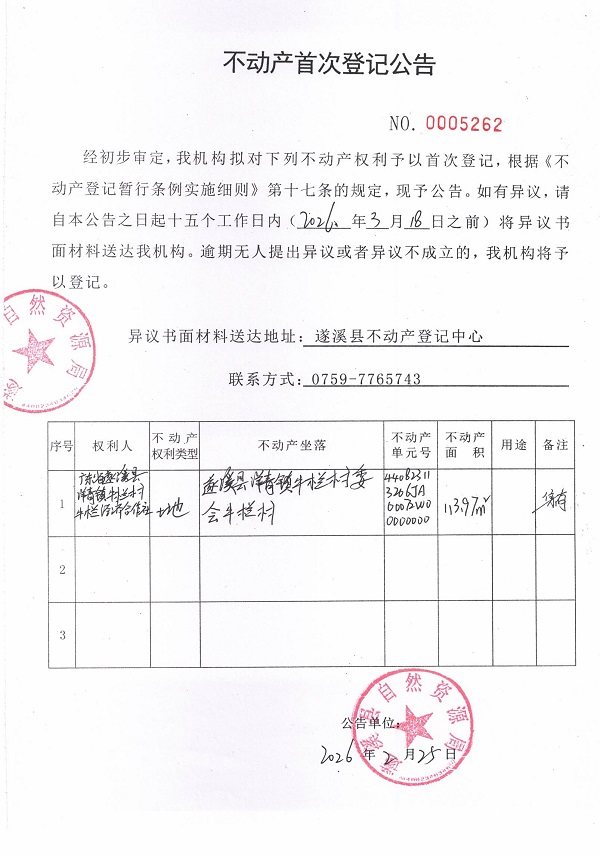 不动产首次登记公告
NO. 0005262
经初步审定，我机构拟对下列不动产权利予以首次登记，根据《不
动产登记暂行条例实施细则》第十七条的规定，现予公告。如有异议，请
自本公告之日起十五个工作日内（2026年3月18日之前）将异议书
面材料送达我机构。逾期无人提出异议或者异议不成立的，我机构将予
以登记。
异议书面材料送达地址：遂溪县不动产登记中心
联系方式：0759-7765743
序号 权利人 不动产权利类型 不动产坐落 不动产单元号 不动产面积 用途 备注
1 广东省遂溪县 土地 遂溪县洋青镇牛栏村委
洋青镇牛栏村 会牛栏村
牛栏经济合作社
44082311
0000000
113.97㎡
2
3
公告单位：
2026年2月25日
遂溪县自然资源局
自然资源局